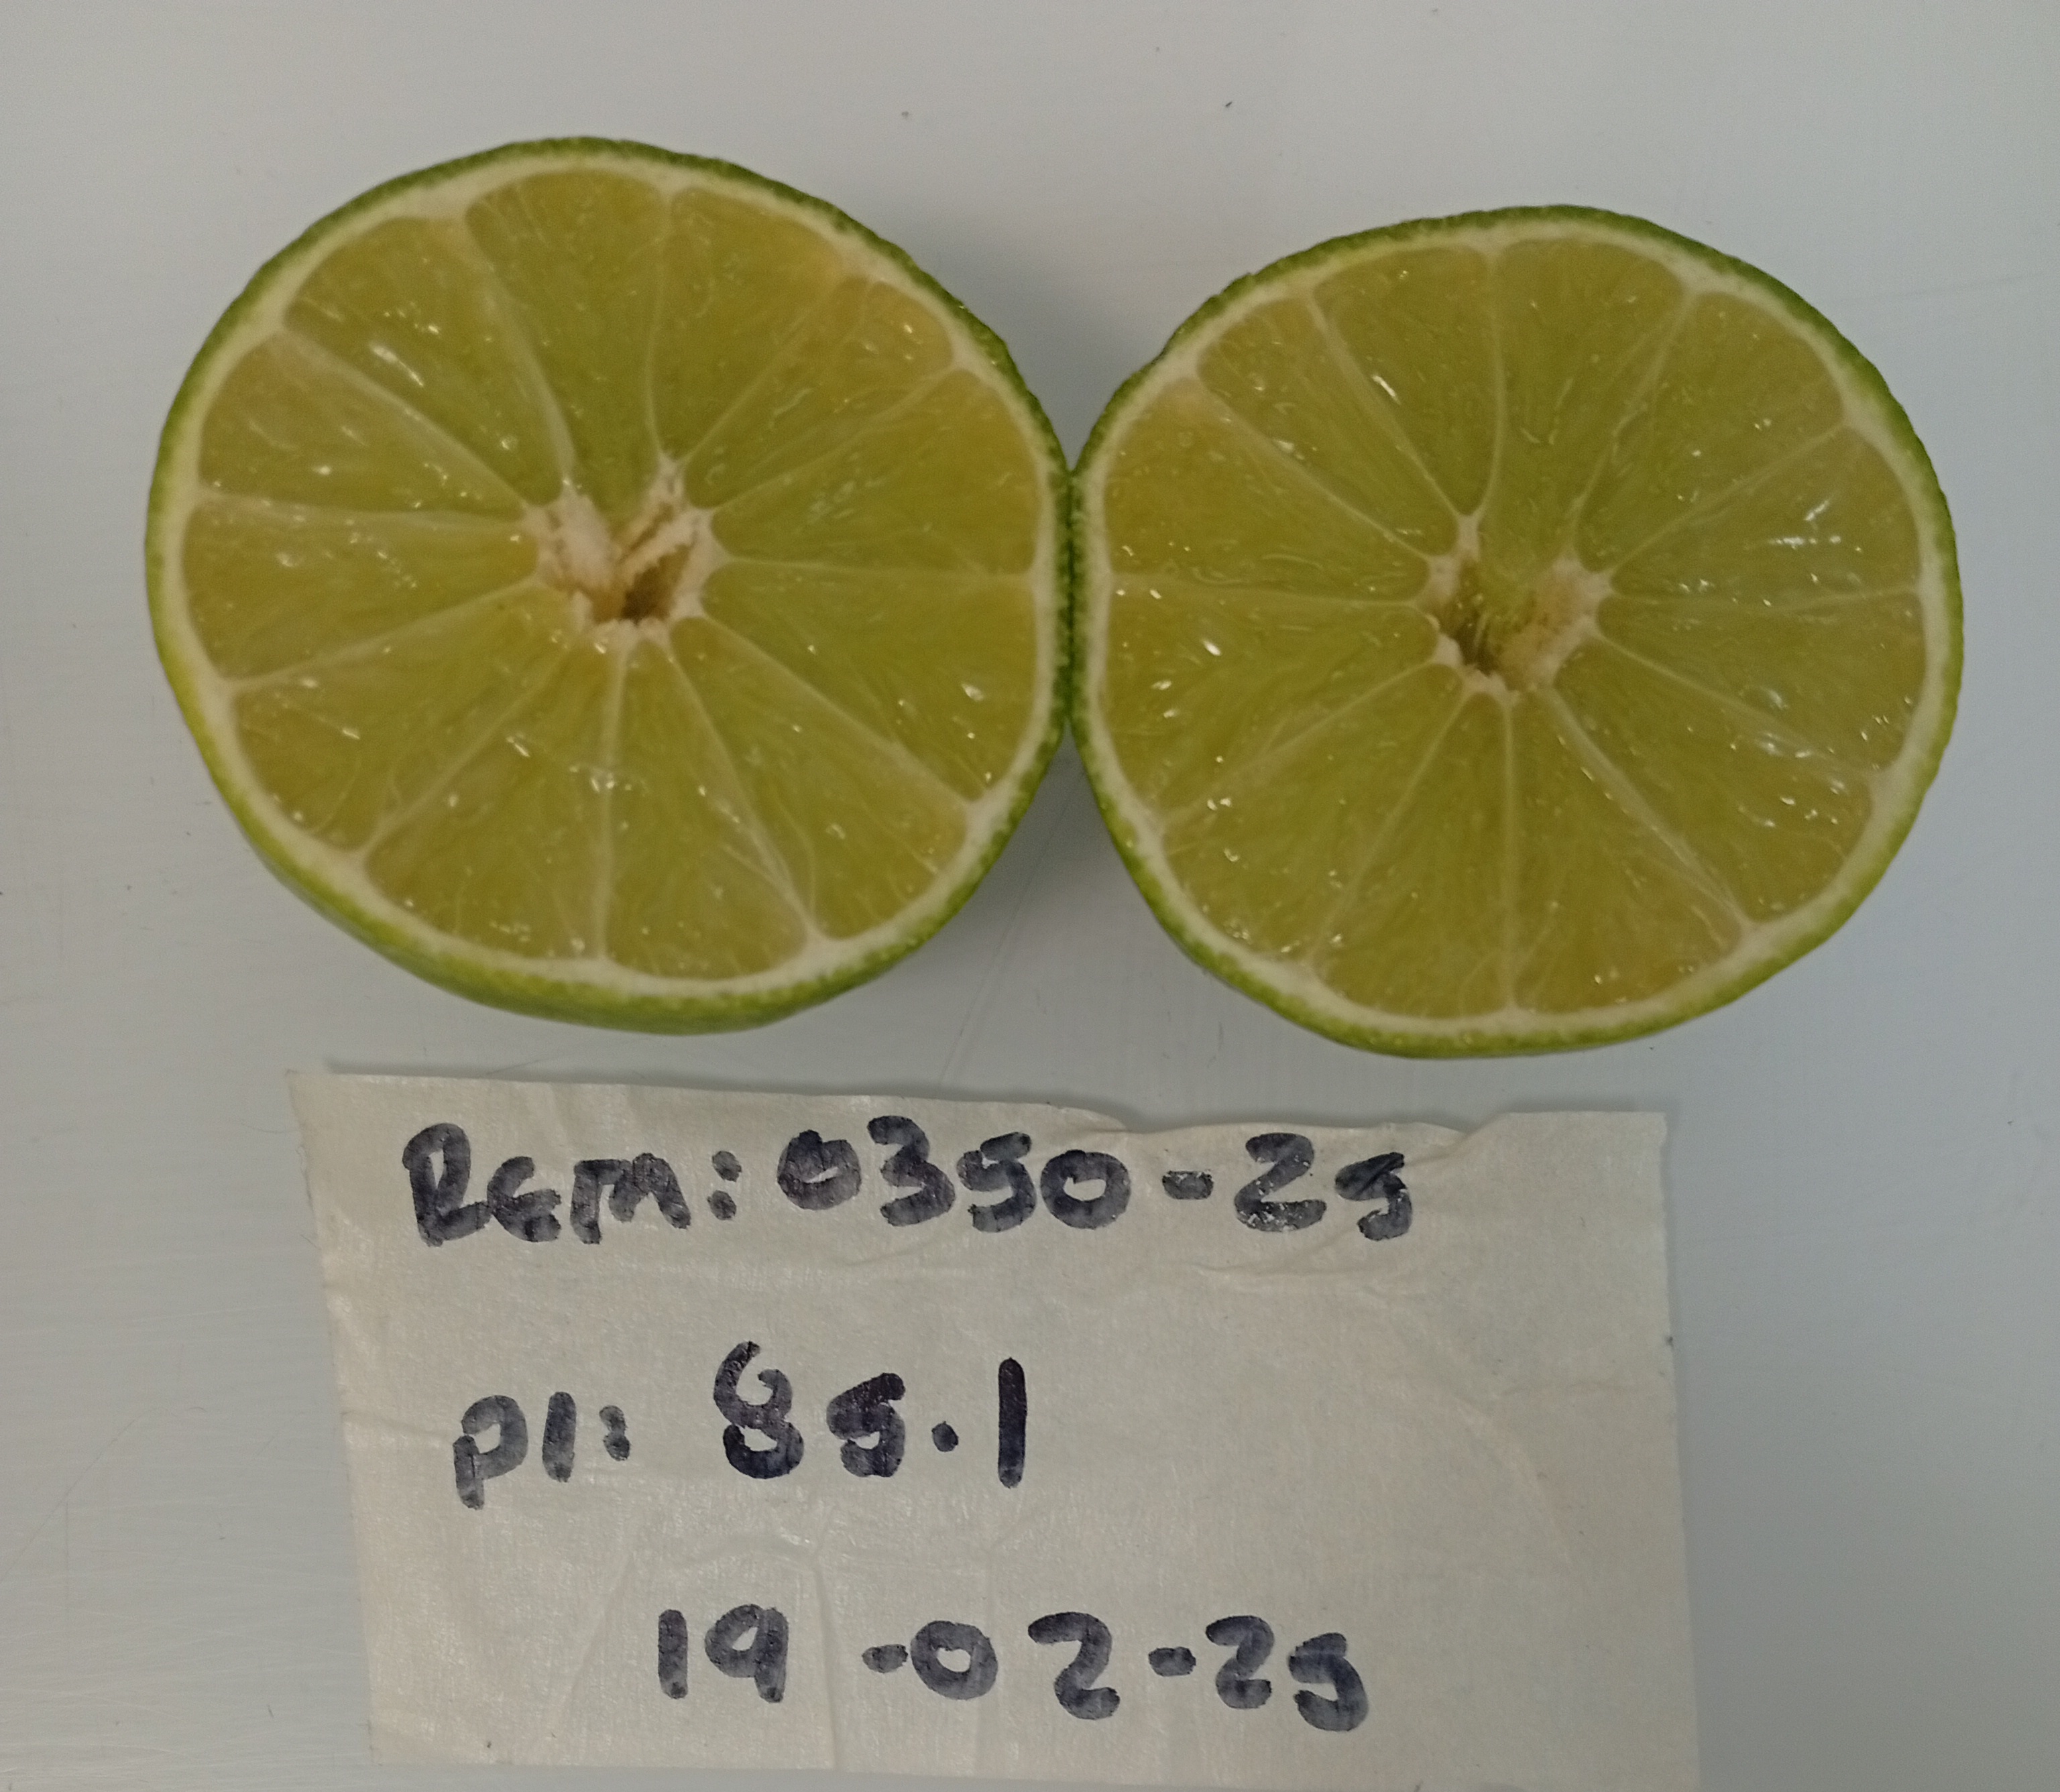 Rem: 0350-25
pl: 85.1
19-02-25